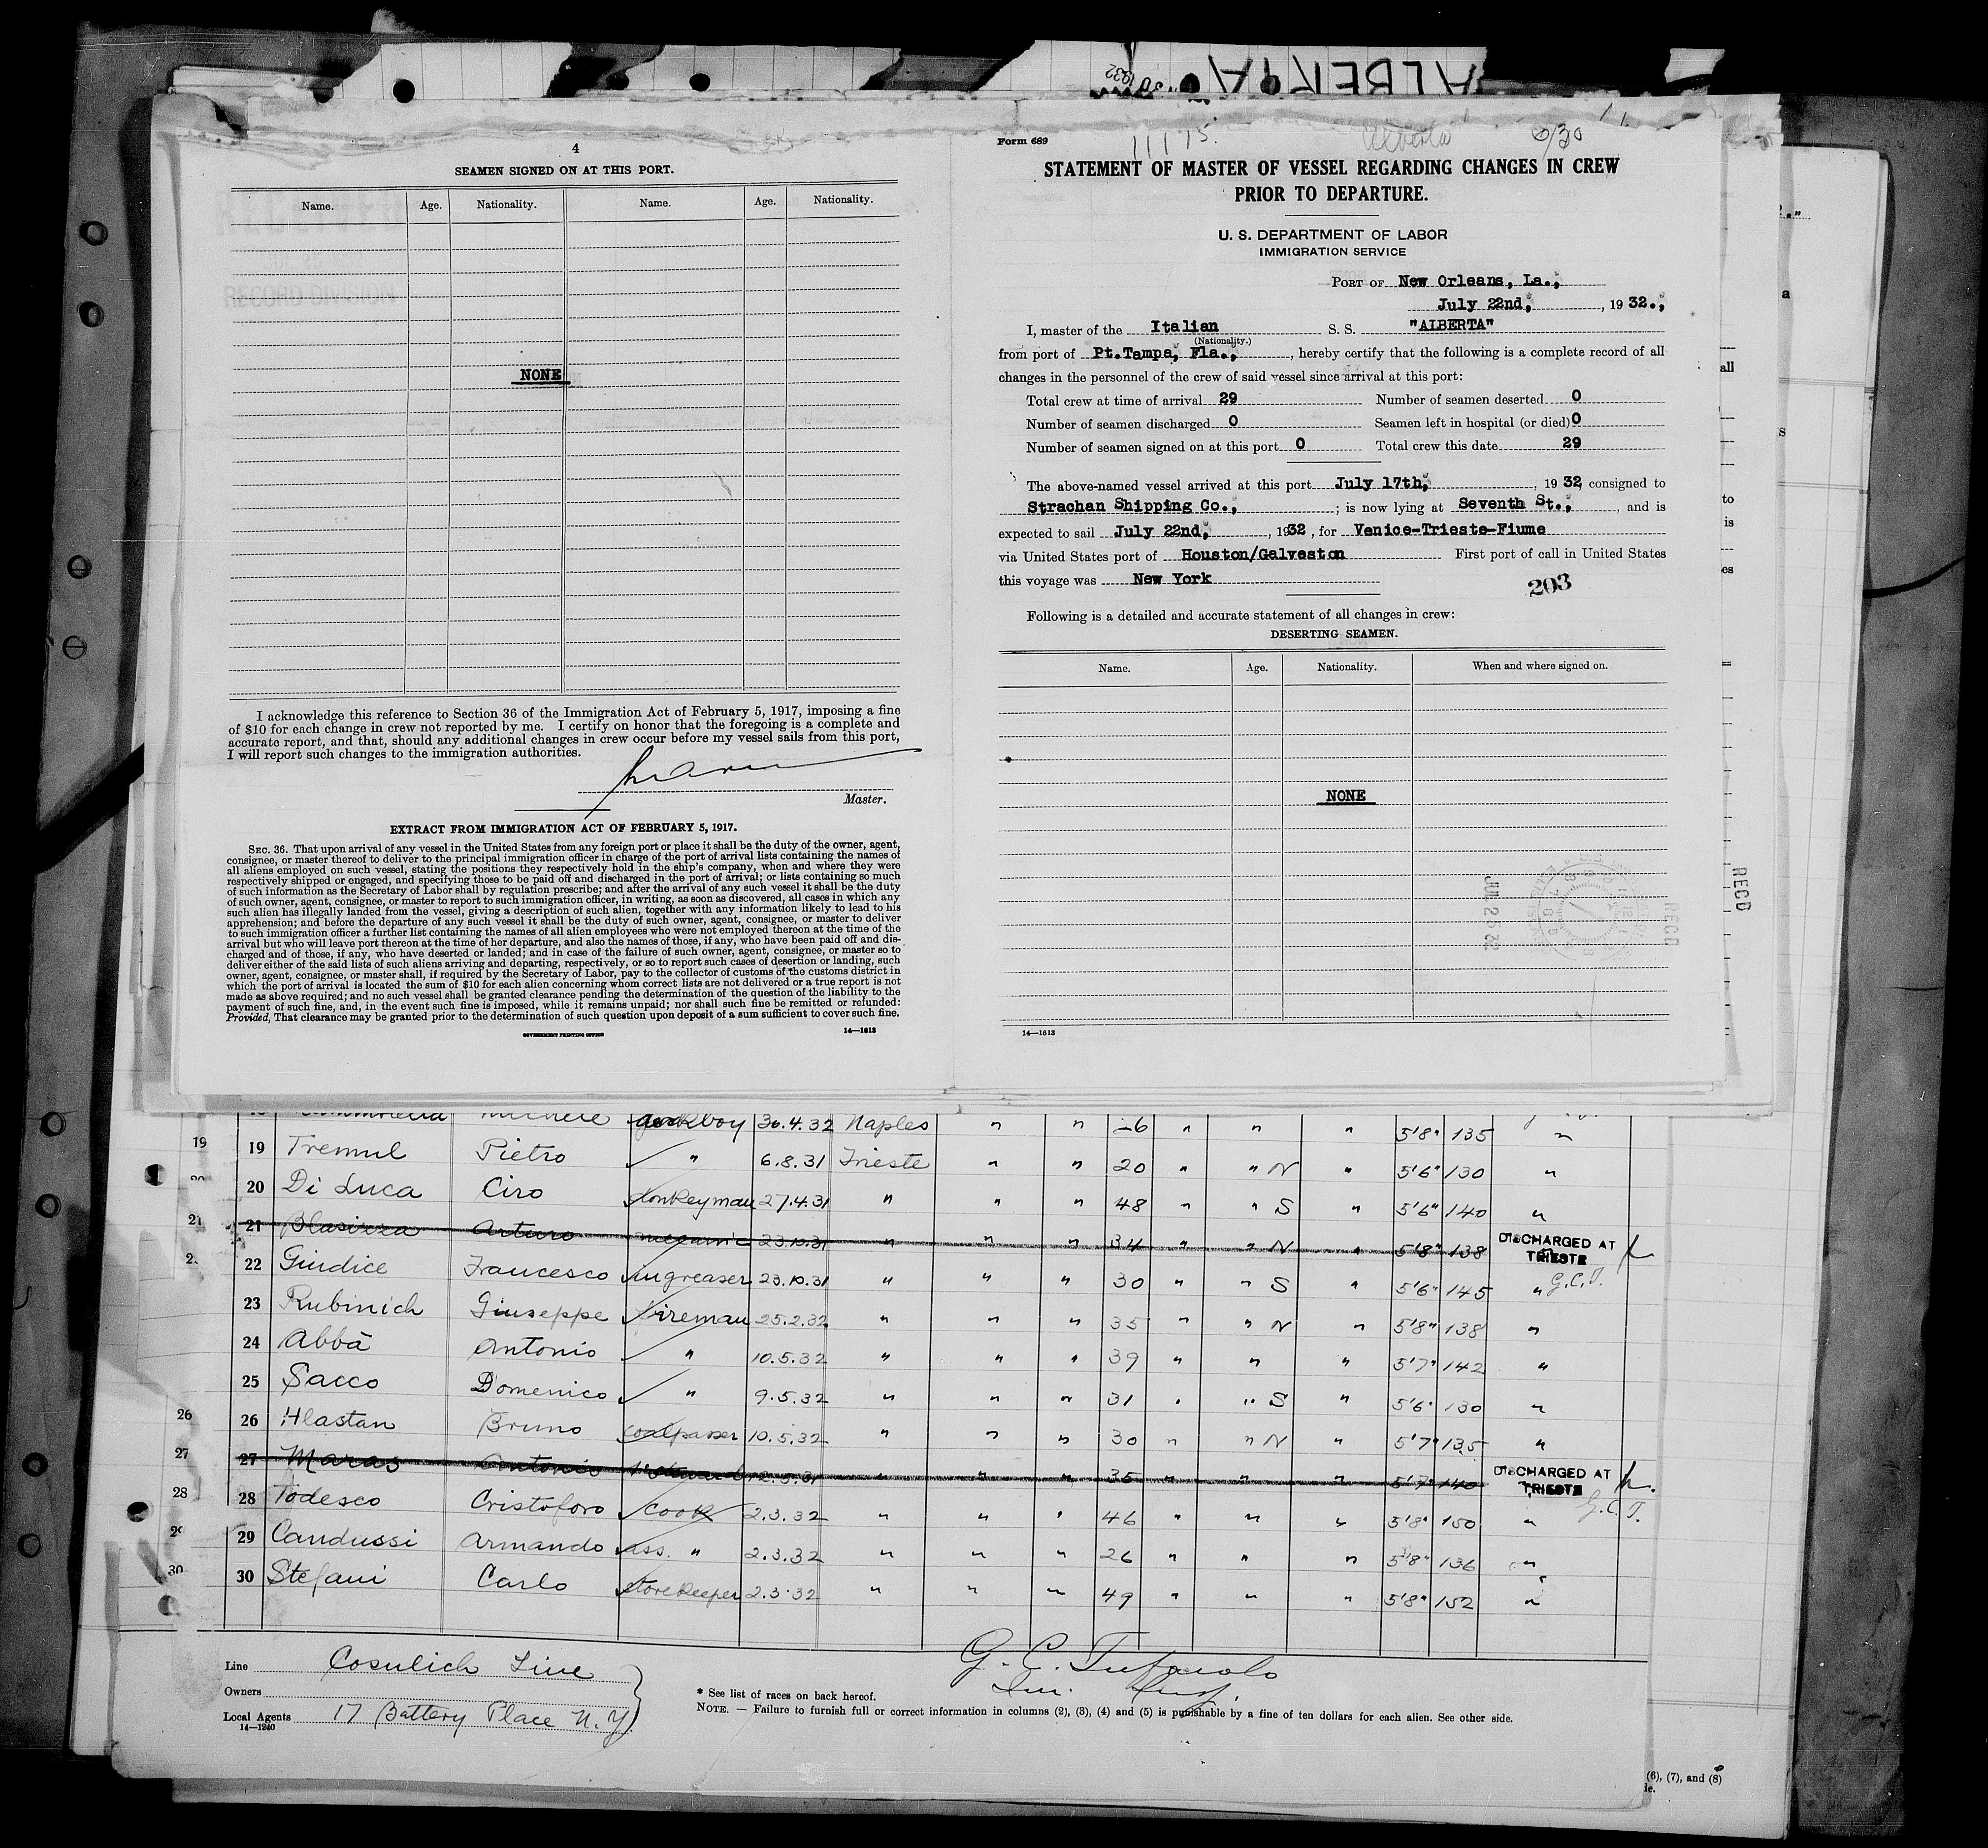 ALBERTA
1932
4
SEAMEN SIGNED ON AT THIS PORT.
Name. Age. Nationality. Name. Age. Nationality.
RECORD DIVISION
NONE
I acknowledge this reference to Section 36 of the Immigration Act of February 5, 1917, imposing a fine
of $10 for each change in crew not reported by me. I certify on honor that the foregoing is a complete and
accurate report, and that, should any additional changes in crew occur before my vessel sails from this port,
I will report such changes to the immigration authorities.
Master.
EXTRACT FROM IMMIGRATION ACT OF FEBRUARY 5, 1917.
SEC. 36. That upon arrival of any vessel in the United States from any foreign port or place it shall be the duty of the owner, agent,
consignee, or master thereof to deliver to the principal immigration officer in charge of the port of arrival lists containing the names of
all aliens employed on such vessel, stating the positions they respectively hold in the ship's company, when and where they were
respectively shipped or engaged, and specifying those to be paid off and discharged in the port of arrival; or lists containing so much
of such information as the Secretary of Labor shall by regulation prescribe; and after the arrival of any such vessel it shall be the duty
of such owner, agent, consignee, or master to report to such immigration officer, in writing, as soon as discovered, all cases in which any
such alien has illegally landed from the vessel, giving a description of such alien, together with any information likely to lead to his
apprehension; and before the departure of any such vessel it shall be the duty of such owner, agent, consignee, or master to deliver
to such immigration officer a further list containing the names of all alien employees who were not employed thereon at the time of the
arrival but who will leave port thereon at the time of her departure, and also the names of those, if any, who have been paid off and dis-
charged and of those, if any, who have deserted or landed; and in case of the failure of such owner, agent, consignee, or master so to
deliver either of the said lists of such aliens arriving and departing, respectively, or so to report such cases of desertion or landing, such
owner, agent, consignee, or master shall, if required by the Secretary of Labor, pay to the collector of customs of the customs district in
which the port of arrival is located the sum of $10 for each alien concerning whom correct lists are not delivered or a true report is not
made as above required; and no such vessel shall be granted clearance pending the determination of the question of the liability to the
payment of such fine, and, in the event such fine is imposed, while it remains unpaid; nor shall such fine be remitted or refunded:
Provided, That clearance may be granted prior to the determination of such question upon deposit of a sum sufficient to cover such fine.
GOVERNMENT PRINTING OFFICE 14—1613
Form 689 11175 Alberta 6/30
STATEMENT OF MASTER OF VESSEL REGARDING CHANGES IN CREW
PRIOR TO DEPARTURE.
U. S. DEPARTMENT OF LABOR
IMMIGRATION SERVICE
PORT OF New Orleans, La.,
July 22nd, , 1932.,
I, master of the Italian S. S. "ALBERTA"
(Nationality.)
from port of Pt.Tampa, Fla., , hereby certify that the following is a complete record of all
changes in the personnel of the crew of said vessel since arrival at this port:
Total crew at time of arrival 29 Number of seamen deserted 0
Number of seamen discharged 0 Seamen left in hospital (or died) 0
Number of seamen signed on at this port 0 Total crew this date 29
The above-named vessel arrived at this port July 17th, , 1932, consigned to
Strachan Shipping Co., ; is now lying at Seventh St., , and is
expected to sail July 22nd, , 1932, for Venice-Trieste-Fiume
via United States port of Houston/Galveston First port of call in United States
this voyage was New York
203
Following is a detailed and accurate statement of all changes in crew:
DESERTING SEAMEN.
Name. Age. Nationality. When and where signed on.
NONE
JUL 25 32
RECD
RECD
14—1613
Michele boy 30.4.32 Naples " " 26 " " " 5'8" 135 "
19 19 Tremul Pietro " 6.8.31 Trieste " " 20 " " N " 5'6" 130 "
20 Di Luca Ciro donkeyman 27.4.31 " " " 48 " " S " 5'6" 140 "
21 21 Blasizza Arturo mecanic 23.10.31 " " " 34 " " N " 5'8" 138 DISCHARGED AT TRIESTE
22 Giudice Francesco greaser 23.10.31 " " " 30 " " S " 5'6" 145 " G.C.T.
23 Rubinich Giuseppe fireman 25.2.32 " " " 35 " " N " 5'8" 138 "
24 Abbà Antonio " 10.5.32 " " " 39 " " " 5'7" 142 "
25 Sacco Domenico " 9.5.32 " " " 31 " " S " 5'6" 130 "
26 26 Hlastan Bruno coalpasser 10.5.32 " " " 30 " " N " 5'7" 135 "
27 27 Maras Antonio " " " 35 " " " 5'7" 140 DISCHARGED AT TRIESTE
28 28 Todesco Cristoforo cook 2.3.32 " " " 46 " " " 5'8" 150 " G.C.T.
29 29 Candussi Armando ass. " 2.3.32 " " " 26 " " " 5'8" 136 "
30 30 Stefani Carlo storekeeper 2.3.32 " " " 49 " " " 5'8" 152 "
Line Cosulich Line
Owners
Local Agents 17 Battery Place N.Y.
14—1240
G. C. Tufarolo
* See list of races on back hereof.
NOTE. — Failure to furnish full or correct information in columns (2), (3), (4) and (5) is punishable by a fine of ten dollars for each alien. See other side.
(6), (7), and (8)